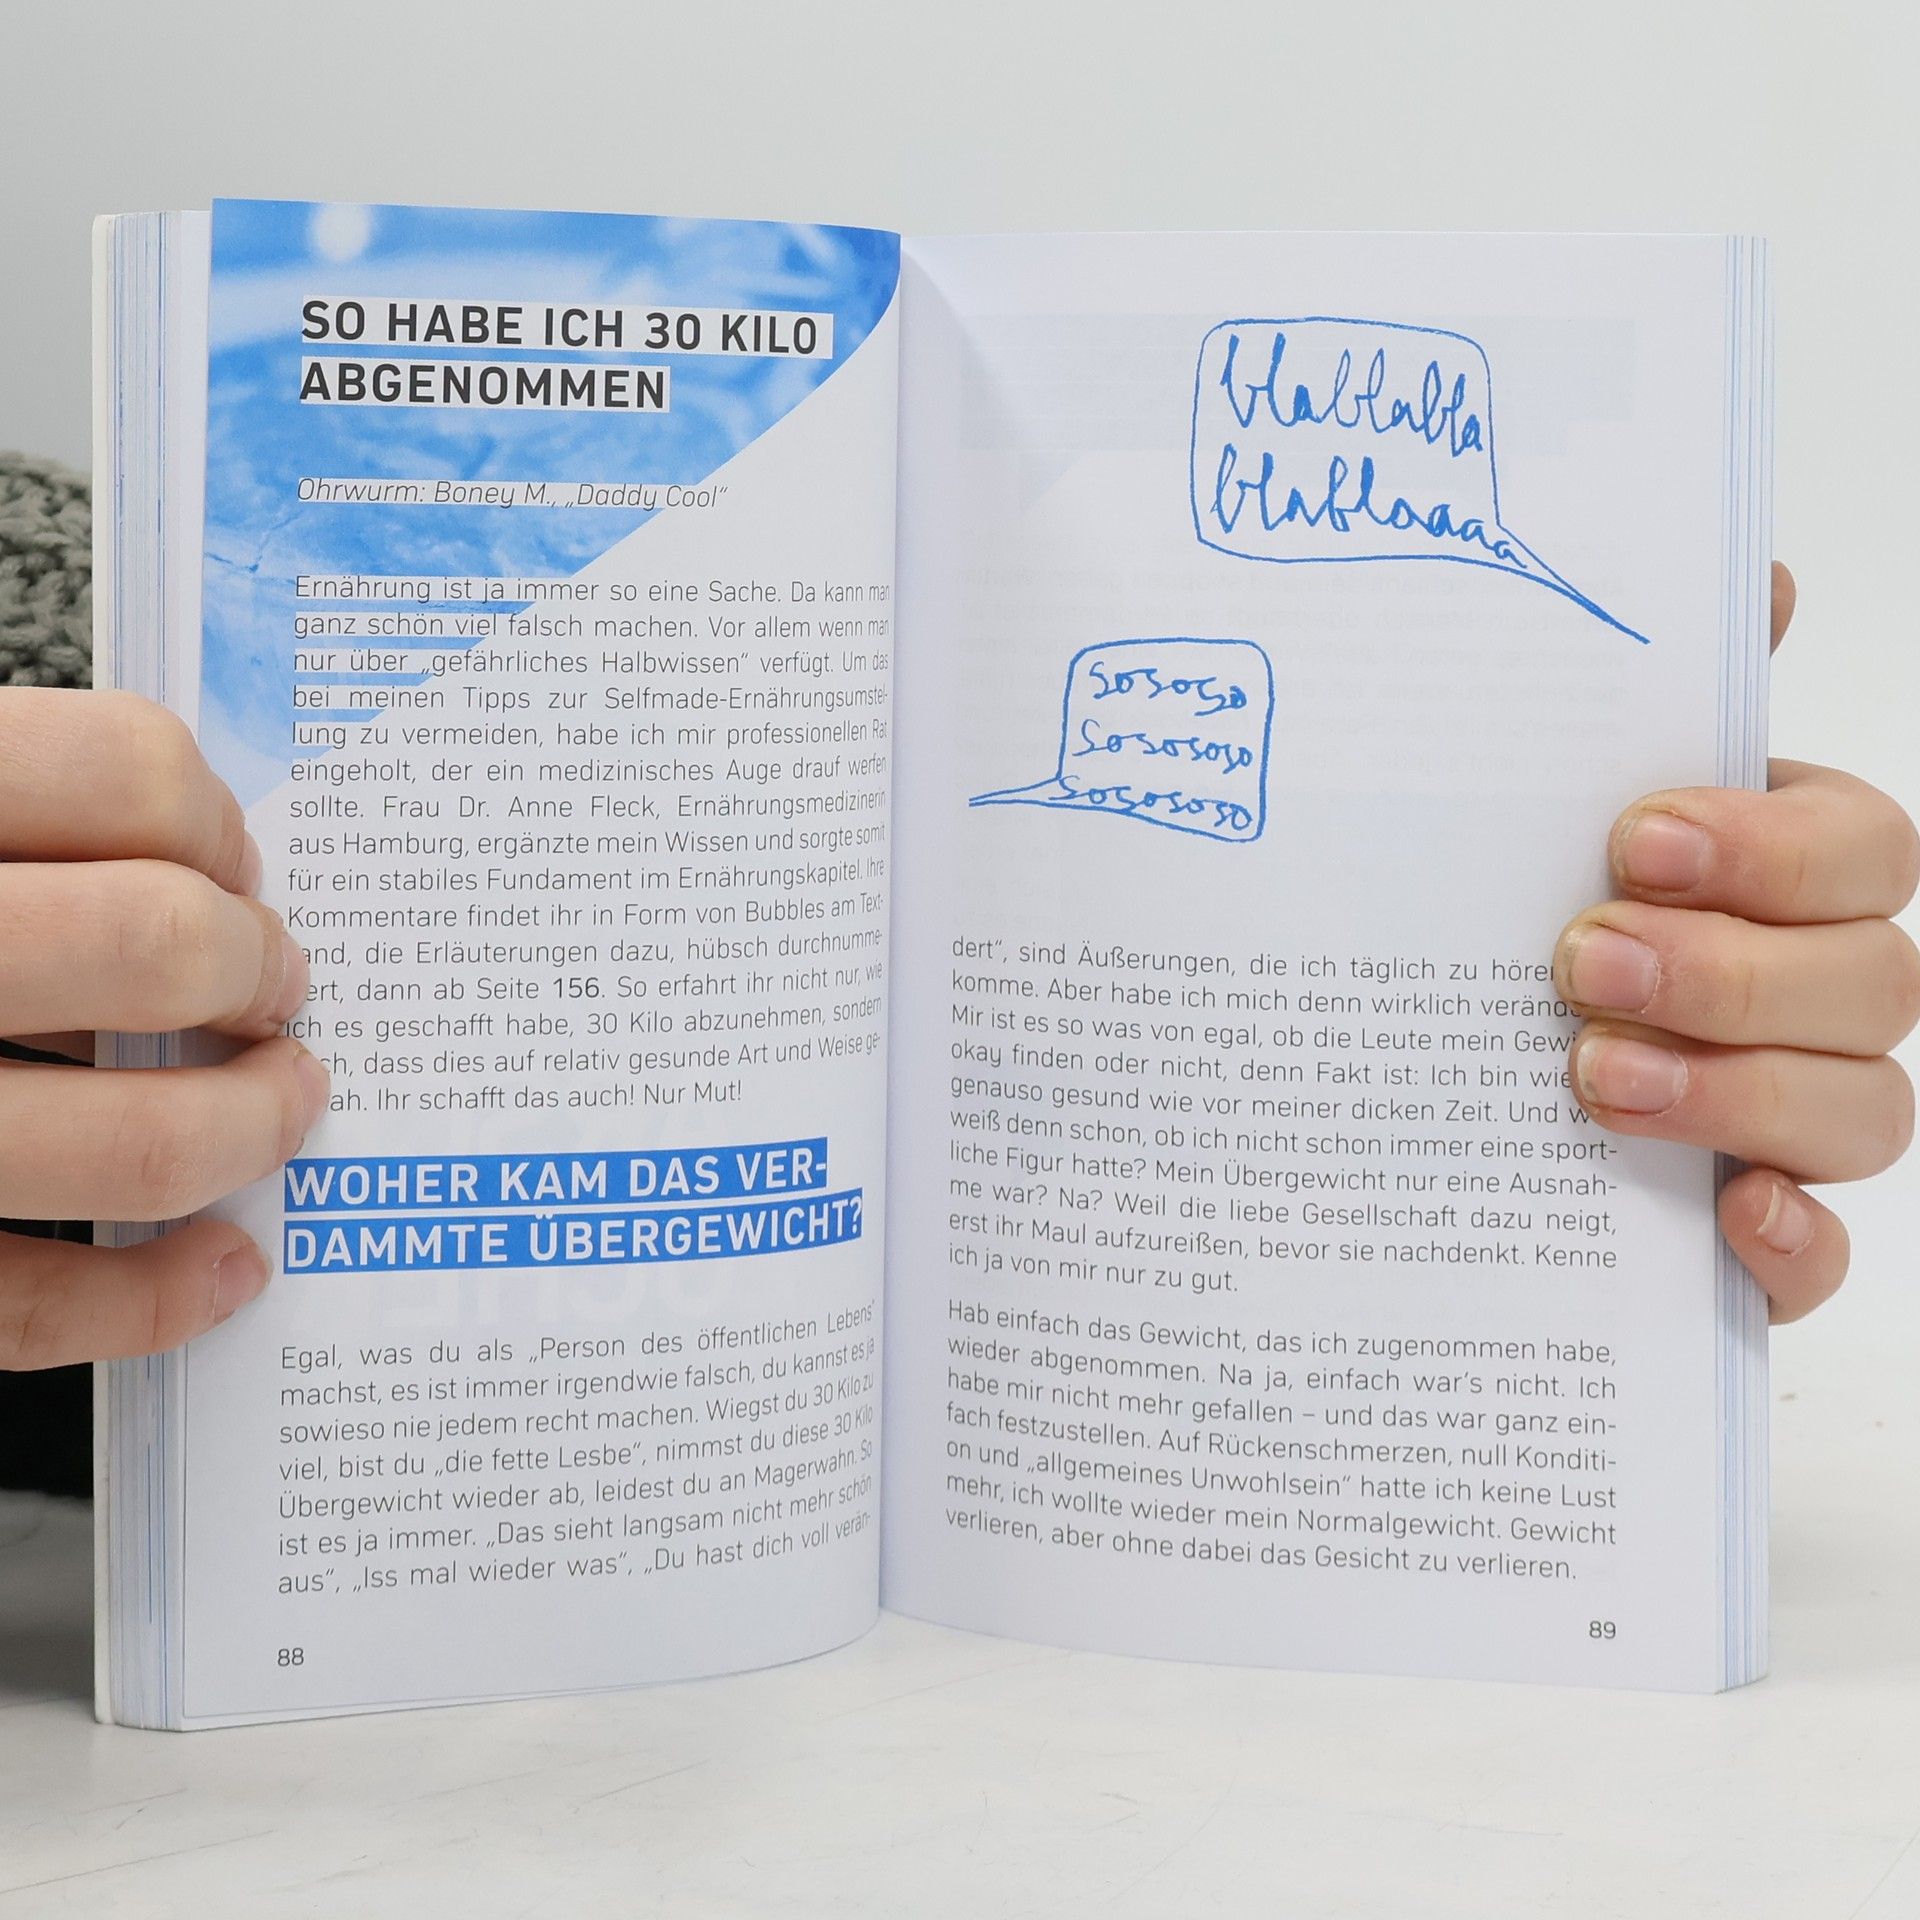 SO HABE ICH 30 KILO
ABGENOMMEN
Ohrwurm: Boney M., „Daddy Cool“
Ernährung ist ja immer so eine Sache. Da kann man
ganz schön viel falsch machen. Vor allem wenn man
nur über „gefährliches Halbwissen“ verfügt. Um das
bei meinen Tipps zur Selfmade-Ernährungsumstel-
lung zu vermeiden, habe ich mir professionellen Rat
eingeholt, der ein medizinisches Auge drauf werfen
sollte. Frau Dr. Anne Fleck, Ernährungsmedizinerin
aus Hamburg, ergänzte mein Wissen und sorgte somit
für ein stabiles Fundament im Ernährungskapitel. Ihre
Kommentare findet ihr in Form von Bubbles am Text-
and, die Erläuterungen dazu, hübsch durchnumme-
ert, dann ab Seite 156. So erfahrt ihr nicht nur, wie
ich es geschafft habe, 30 Kilo abzunehmen, sondern
ch, dass dies auf relativ gesunde Art und Weise ge-
ah. Ihr schafft das auch! Nur Mut!
WOHER KAM DAS VER-
DAMMTE ÜBERGEWICHT?
Egal, was du als „Person des öffentlichen Lebens“
machst, es ist immer irgendwie falsch, du kannst es ja
sowieso nie jedem recht machen. Wiegst du 30 Kilo zu
viel, bist du „die fette Lesbe“, nimmst du diese 30 Kilo
Übergewicht wieder ab, leidest du an Magerwahn. So
ist es ja immer. „Das sieht langsam nicht mehr schön
aus“, „Iss mal wieder was“, „Du hast dich voll verän-
88
blablabla
blablaaaa
sososo
sosososo
sosososo
dert“, sind Äußerungen, die ich täglich zu höre
komme. Aber habe ich mich denn wirklich veränd
Mir ist es so was von egal, ob die Leute mein Gewi
okay finden oder nicht, denn Fakt ist: Ich bin wie
genauso gesund wie vor meiner dicken Zeit. Und w
weiß denn schon, ob ich nicht schon immer eine sport-
liche Figur hatte? Mein Übergewicht nur eine Ausnah-
me war? Na? Weil die liebe Gesellschaft dazu neigt,
erst ihr Maul aufzureißen, bevor sie nachdenkt. Kenne
ich ja von mir nur zu gut.
Hab einfach das Gewicht, das ich zugenommen habe,
wieder abgenommen. Na ja, einfach war’s nicht. Ich
habe mir nicht mehr gefallen – und das war ganz ein-
fach festzustellen. Auf Rückenschmerzen, null Konditi-
on und „allgemeines Unwohlsein“ hatte ich keine Lust
mehr, ich wollte wieder mein Normalgewicht. Gewicht
verlieren, aber ohne dabei das Gesicht zu verlieren.
89